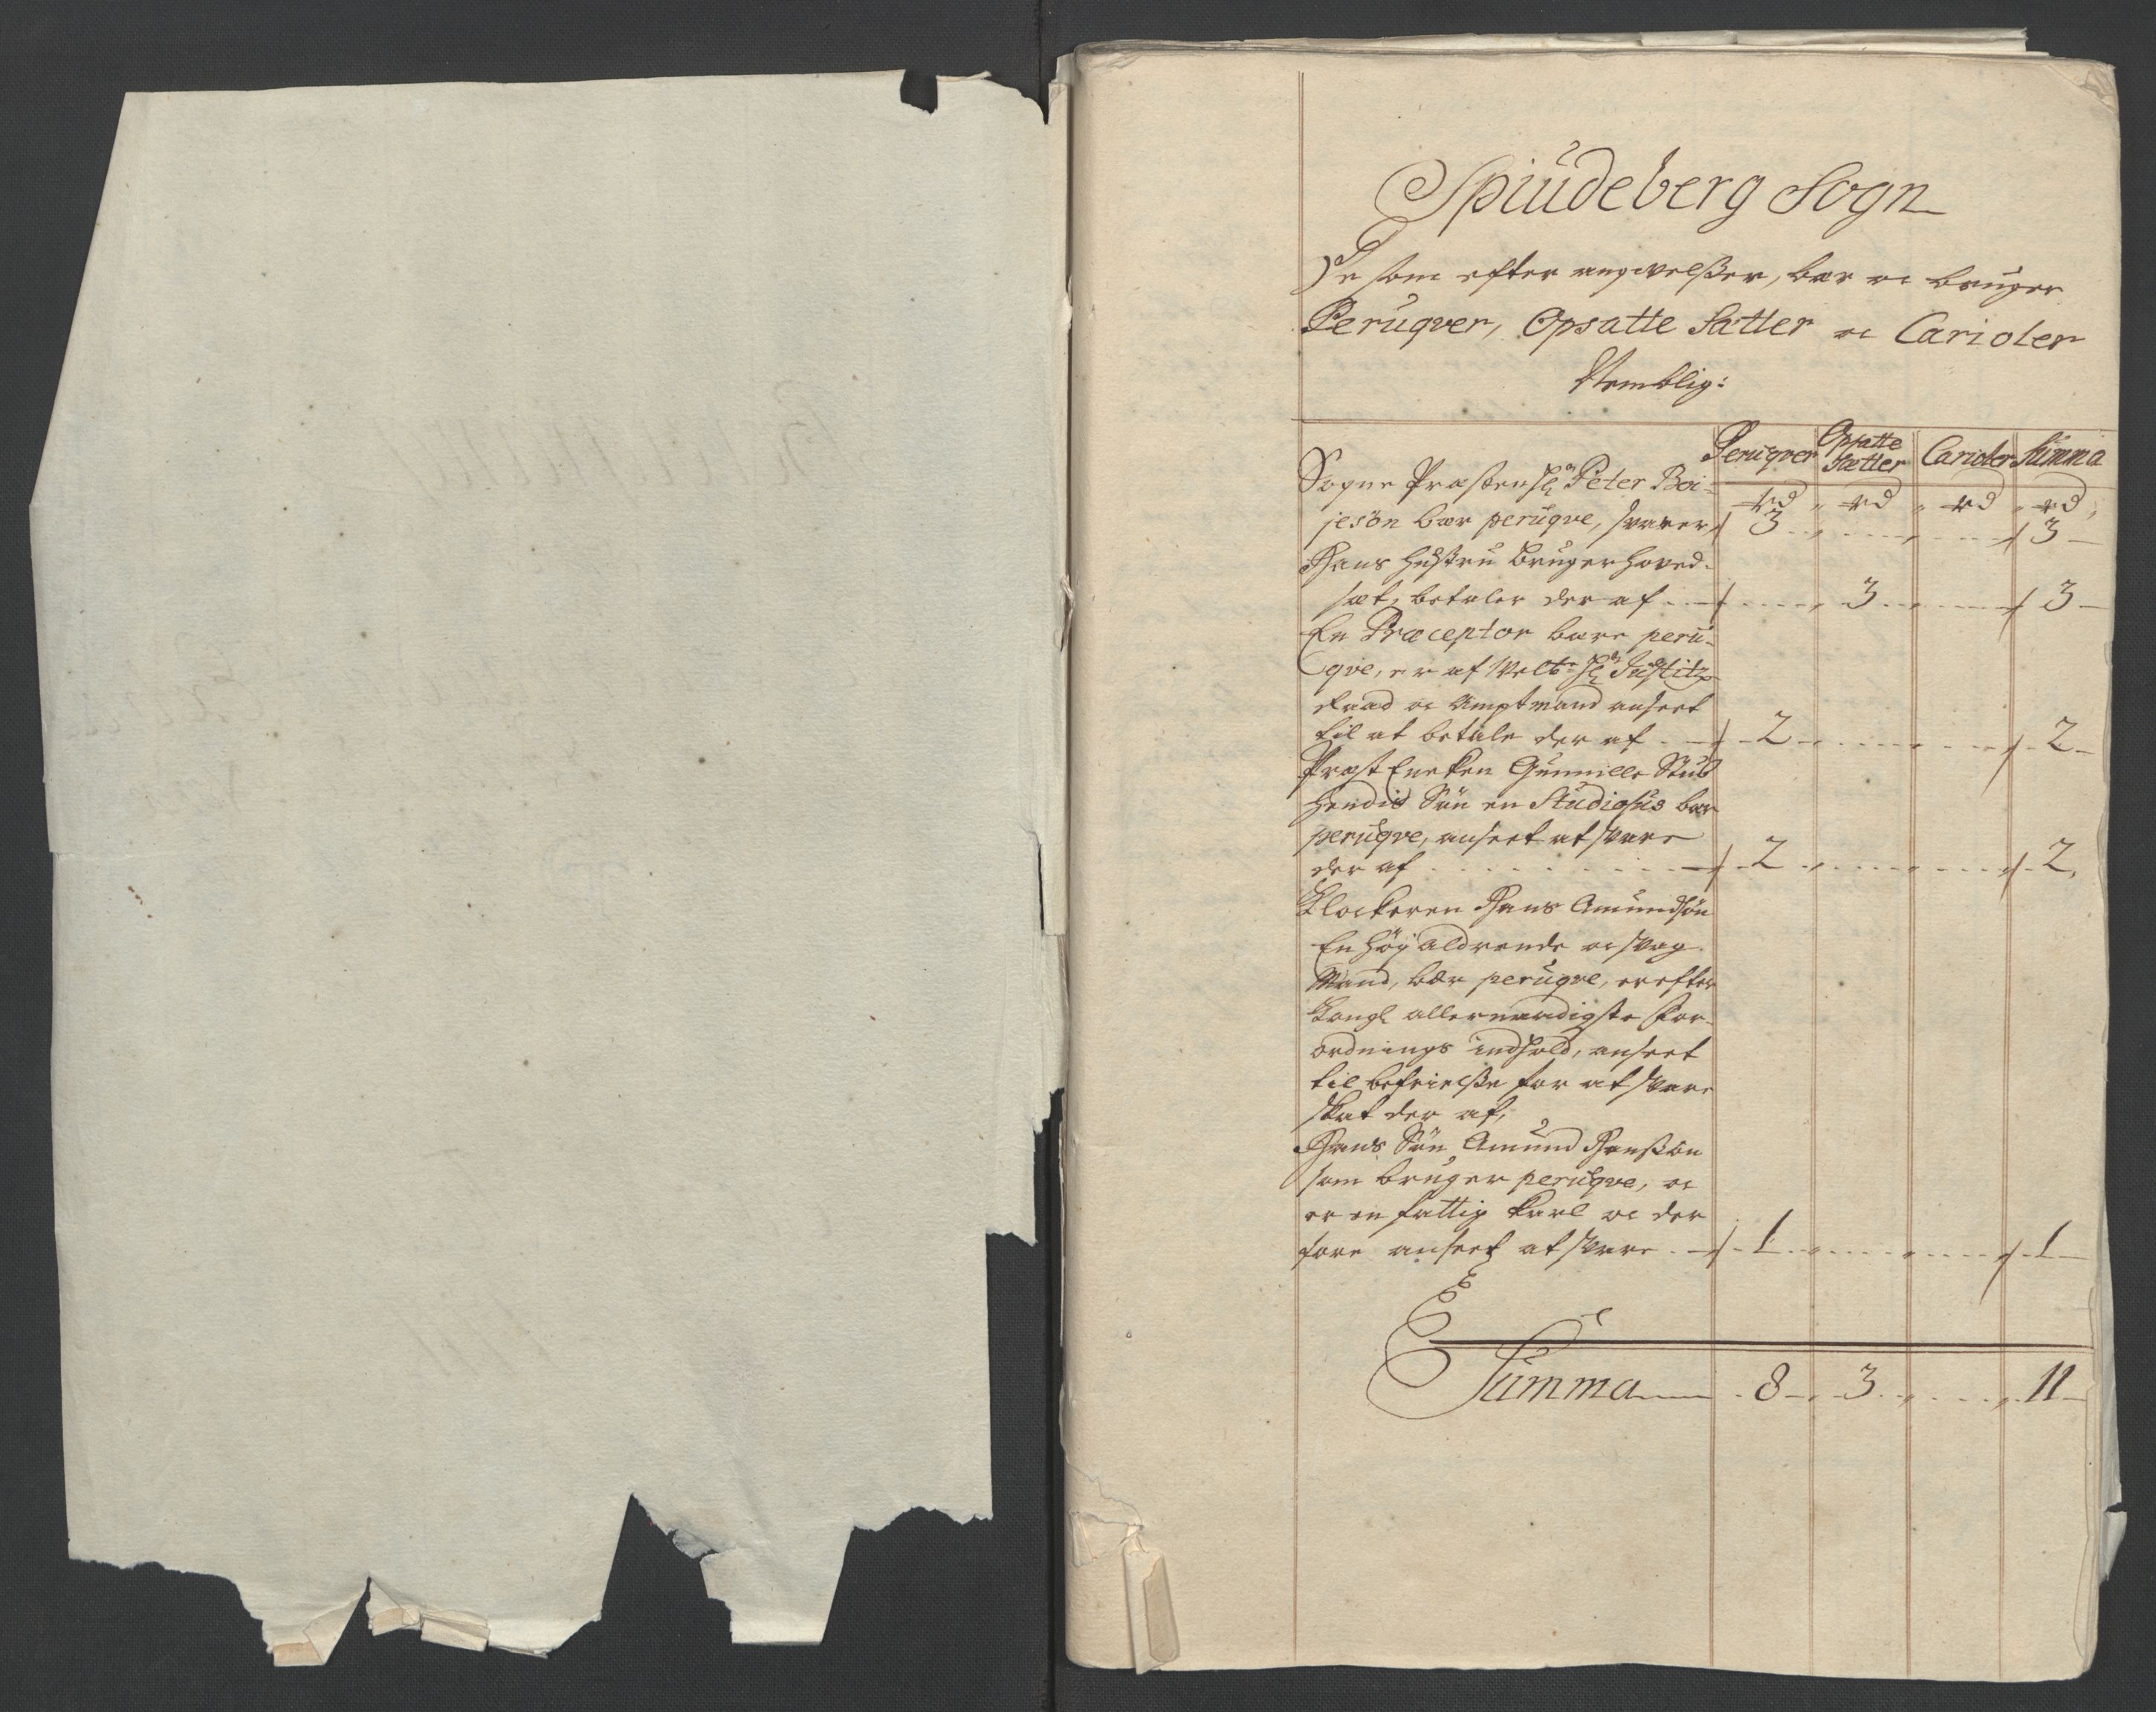 Spiudeberg Sogn
De som efter angivelsser, bær oc bruger
Peruqver, Opsatte Sætter oc Carioler
Nemblig:
Peruqver Opsatte Sætter Carioler Summa
rd rd rd rd
Sogne Præsten Hr Peter Boi-
jesön bær peruqve, svarer 3 3
Hans Hustru bruger hoved-
sæt, betaler der af 3 3
En Præceptor bære peru-
qve, er af Velb: Hr Justitz
Raad oc Amptmand anseet
til at betale der af 2 2
Præst Encken Gunnille Stub
hendis Sön en Studiosus bær
peruqve, anseet at svare
der af 2 2
Klockeren Hans Amundsön
En höy aldrende oc svag
Mand, bær peruqve, er efter
Kongl allernaadigste for-
ordnings indhold, anseet
til befrielsse for at svare
skat der af,
Hans Sön Amund Hanssön
som bruger peruqve, oc
er en fattig karl oc der
fore anseet at svare 1 1
Summa 8 3 11